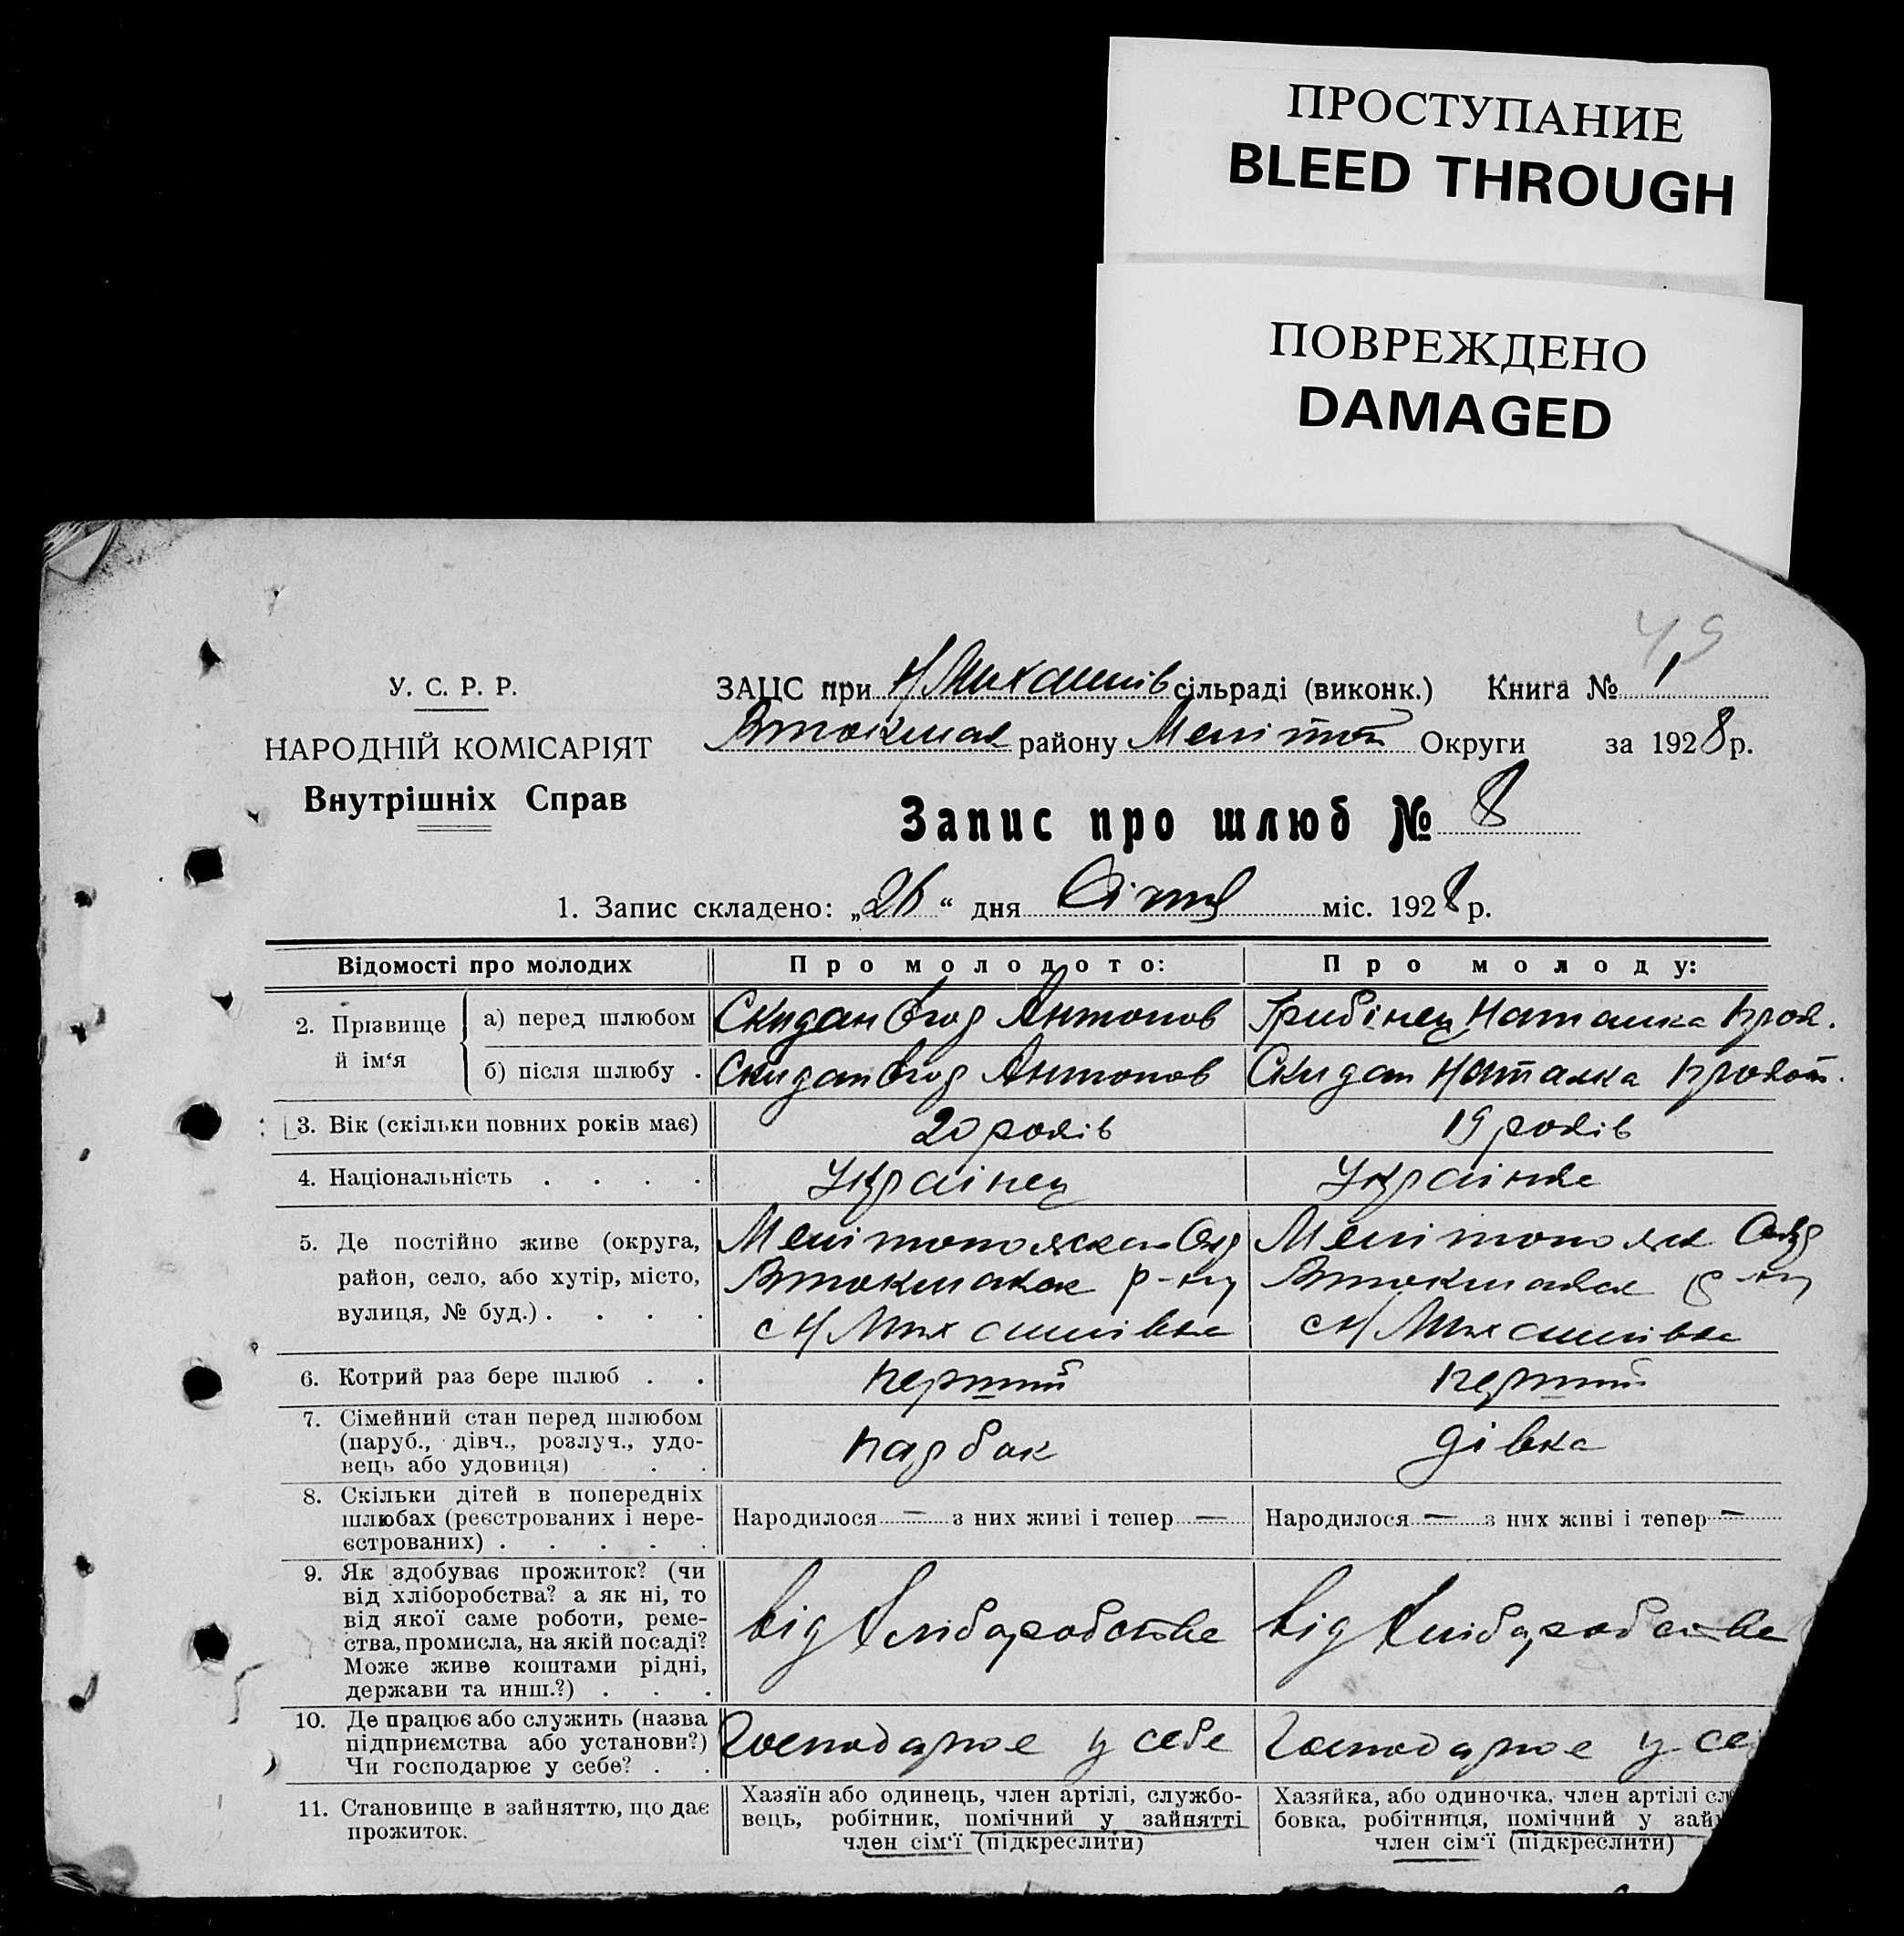 ПРОСТУПАНИЕ
BLEED THROUGH
ПОВРЕЖДЕНО
DAMAGED
49
У. С. Р. Р.
НАРОДНІЙ КОМІСАРІЯТ
Внутрішніх Справ
ЗАЦС при Н/Михайлів сільраді (виконк.) Книга № 1
Втокмак району Меліт Округи за 1928 р.
Запис про шлюб № 8
1. Запис складено: „26“ дня Січня міс. 1928 р.
Відомості про молодих
Про молодого:
Про молоду:
2. Прізвище й ім‘я
а) перед шлюбом
Скидан Антонов
Грибінец Наталка
б) після шлюбу .
Скидан Антонов
Скидан Наталка
3. Вік (скільки повних років має)
20 років
19 років
4. Національність . . . .
Українец
Українка
5. Де постійно живе (округа,
район, село, або хутір, місто,
вулиця, № буд.) . . . .
Мелітопольска Окр
Втокмакск р-ну
с Н/Михайлівка
Мелітопольск Окр
Втокмакск р-ну
с Н/Михайлівка
6. Котрий раз бере шлюб . .
перший
перший
7. Сімейний стан перед шлюбом
(паруб., дівч., розлуч., удо-
вець або удовиця) . .
парбок
дівка
8. Скільки дітей в попередніх
шлюбах (реєстрованих і нере-
єстрованих) . . . . .
Народилося — з них живі і тепер —
Народилося — з них живі і тепер —
9. Як здобуває прожиток? (чи
від хліборобства? а як ні, то
від якої саме роботи, реме-
ства, промисла, на якій посаді?
Може живе коштами рідні,
держави та инш.?) . . .
від Хлібаробства
від Хлібаробства
10. Де працює або служить (назва
підприємства або установи?)
Чи господарює у себе? . .
Господарює у себе
Господарює у се
11. Становище в зайняттю, що дає
прожиток.
Хазяїн або одинець, член артілі, службо-
вець, робітник, помічний у зайнятті
член сім‘ї (підкреслити)
Хазяйка, або одиночка, член артілі сл
бовка, робітниця, помічний у зай
член сім‘ї (підкреслити)